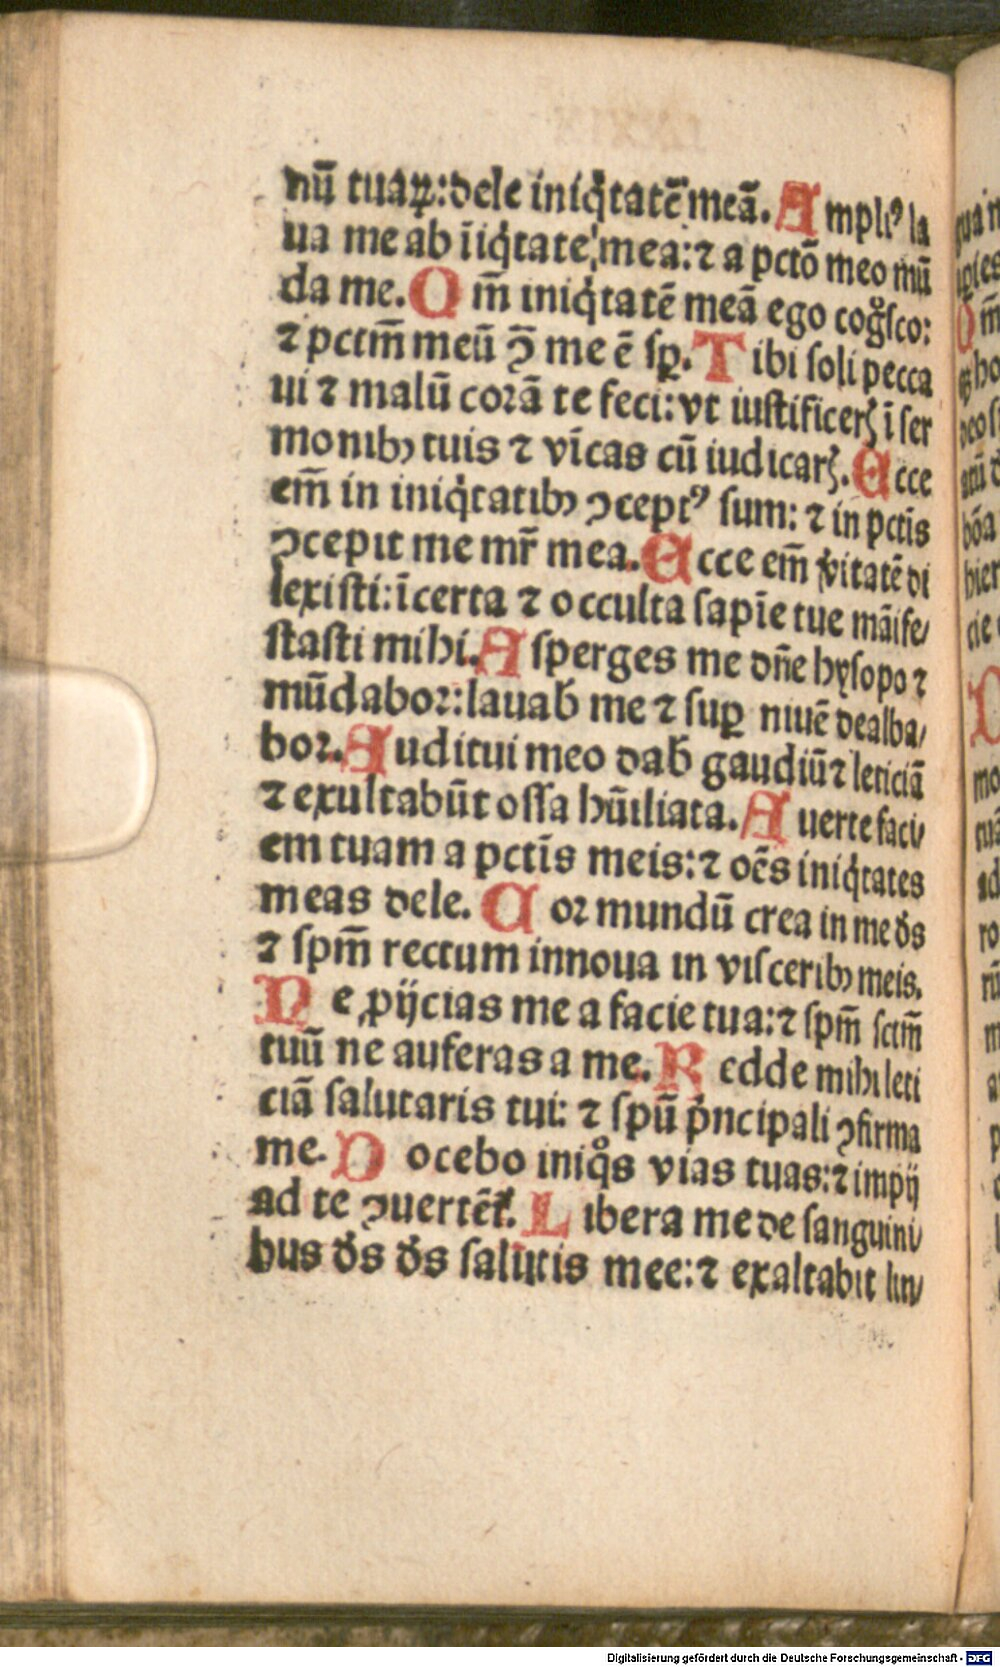 nū tuaꝝ: dele iniq̇tatē meā. Ampliꝰ la
ua me ab īiq̇tate mea: ⁊ a pctō meo mū
da me. Qm̄ iniq̇tatē meā ego cog̊sco:
⁊ pctm̄ meū ↄ̄ me ē sꝑ. Tibi soli pecca
ui ⁊ malū corā te feci: vt iustificerꝭ ī ser
monibꝫ tuis ⁊ vīcas cū iudicarꝭ. Ecce
em̄ in iniq̇tatibꝫ ↄceptꝰ sum: ⁊ in pctīs
ↄcepit me mr̄ mea. Ecce em̄ v̓itatē di
lexisti: īcerta ⁊ occulta sapīe tue māife/
stasti mihi. Asperges me dn̄e hysopo ⁊
mūdabor: lauab̄ me ⁊ suꝑ niuē dealba/
bor. Auditui meo dab̄ gaudiū ⁊ leticiā
⁊ exultabūt ossa hūiliata. Auerte faci/
em tuam a pctīs meis: ⁊ oēs iniq̇tates
meas dele. Cor mundū crea in me ds̄
⁊ spm̄ rectum innoua in visceribꝫ meis.
Ne ꝓijcias me a facie tua: ⁊ spm̄ sctm̄
tuū ne auferas a me. Redde mihi leti
ciā salutaris tui: ⁊ spū pⁱncipali ↄfirma
me. Docebo iniq̊s vias tuas: ⁊ impij
ad te ↄuertēt᷑. Libera me de sanguini/
bus ds̄ ds̄ salutis mee: ⁊ exaltabit lin/
Digitalisierung gefördert durch die Deutsche Forschungsgemeinschaft - DFG